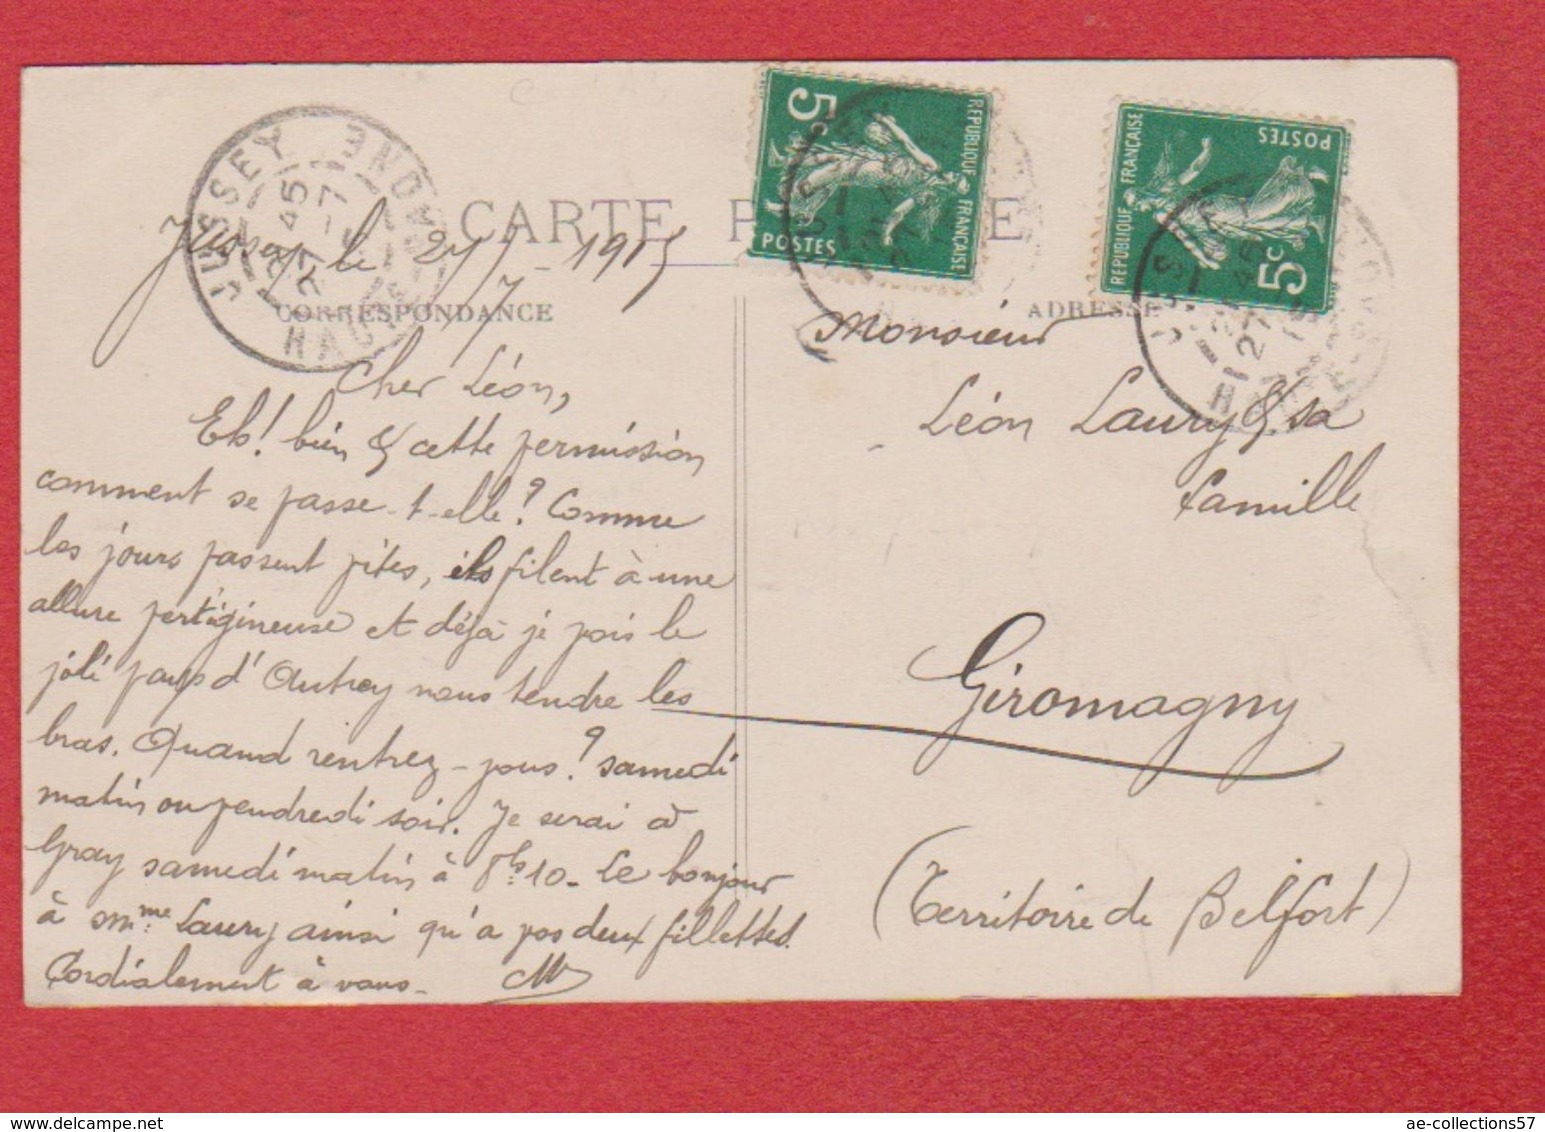 JUSSEY HAUTE-SAONE
45
27 -7
CARTE P E
5c
REPUBLIQUE FRANÇAISE
POSTES
REPUBLIQUE FRANÇAISE
POSTES
5c
Jussey, le 27/7 - 1915
CORRESPONDANCE
ADRESSE
Cher Léon,
Eh! bien & cette permission
comment se passe-t-elle? Comme
les jours passent vites, ils filent à une
allure vertigineuse et déjà je vois le
joli pays d'Autrey nous tendre les
bras. Quand rentrez-vous? samedi
matin ou vendredi soir. Je serai à
Gray samedi matin à 8h:10- Le bonjour
à Mme: Laury ainsi qu'à vos deux fillettes.
Cordialement à vous-
Monsieur
Léon Laury & sa
famille
Giromagny
(Territoire de Belfort)
ae-collections57